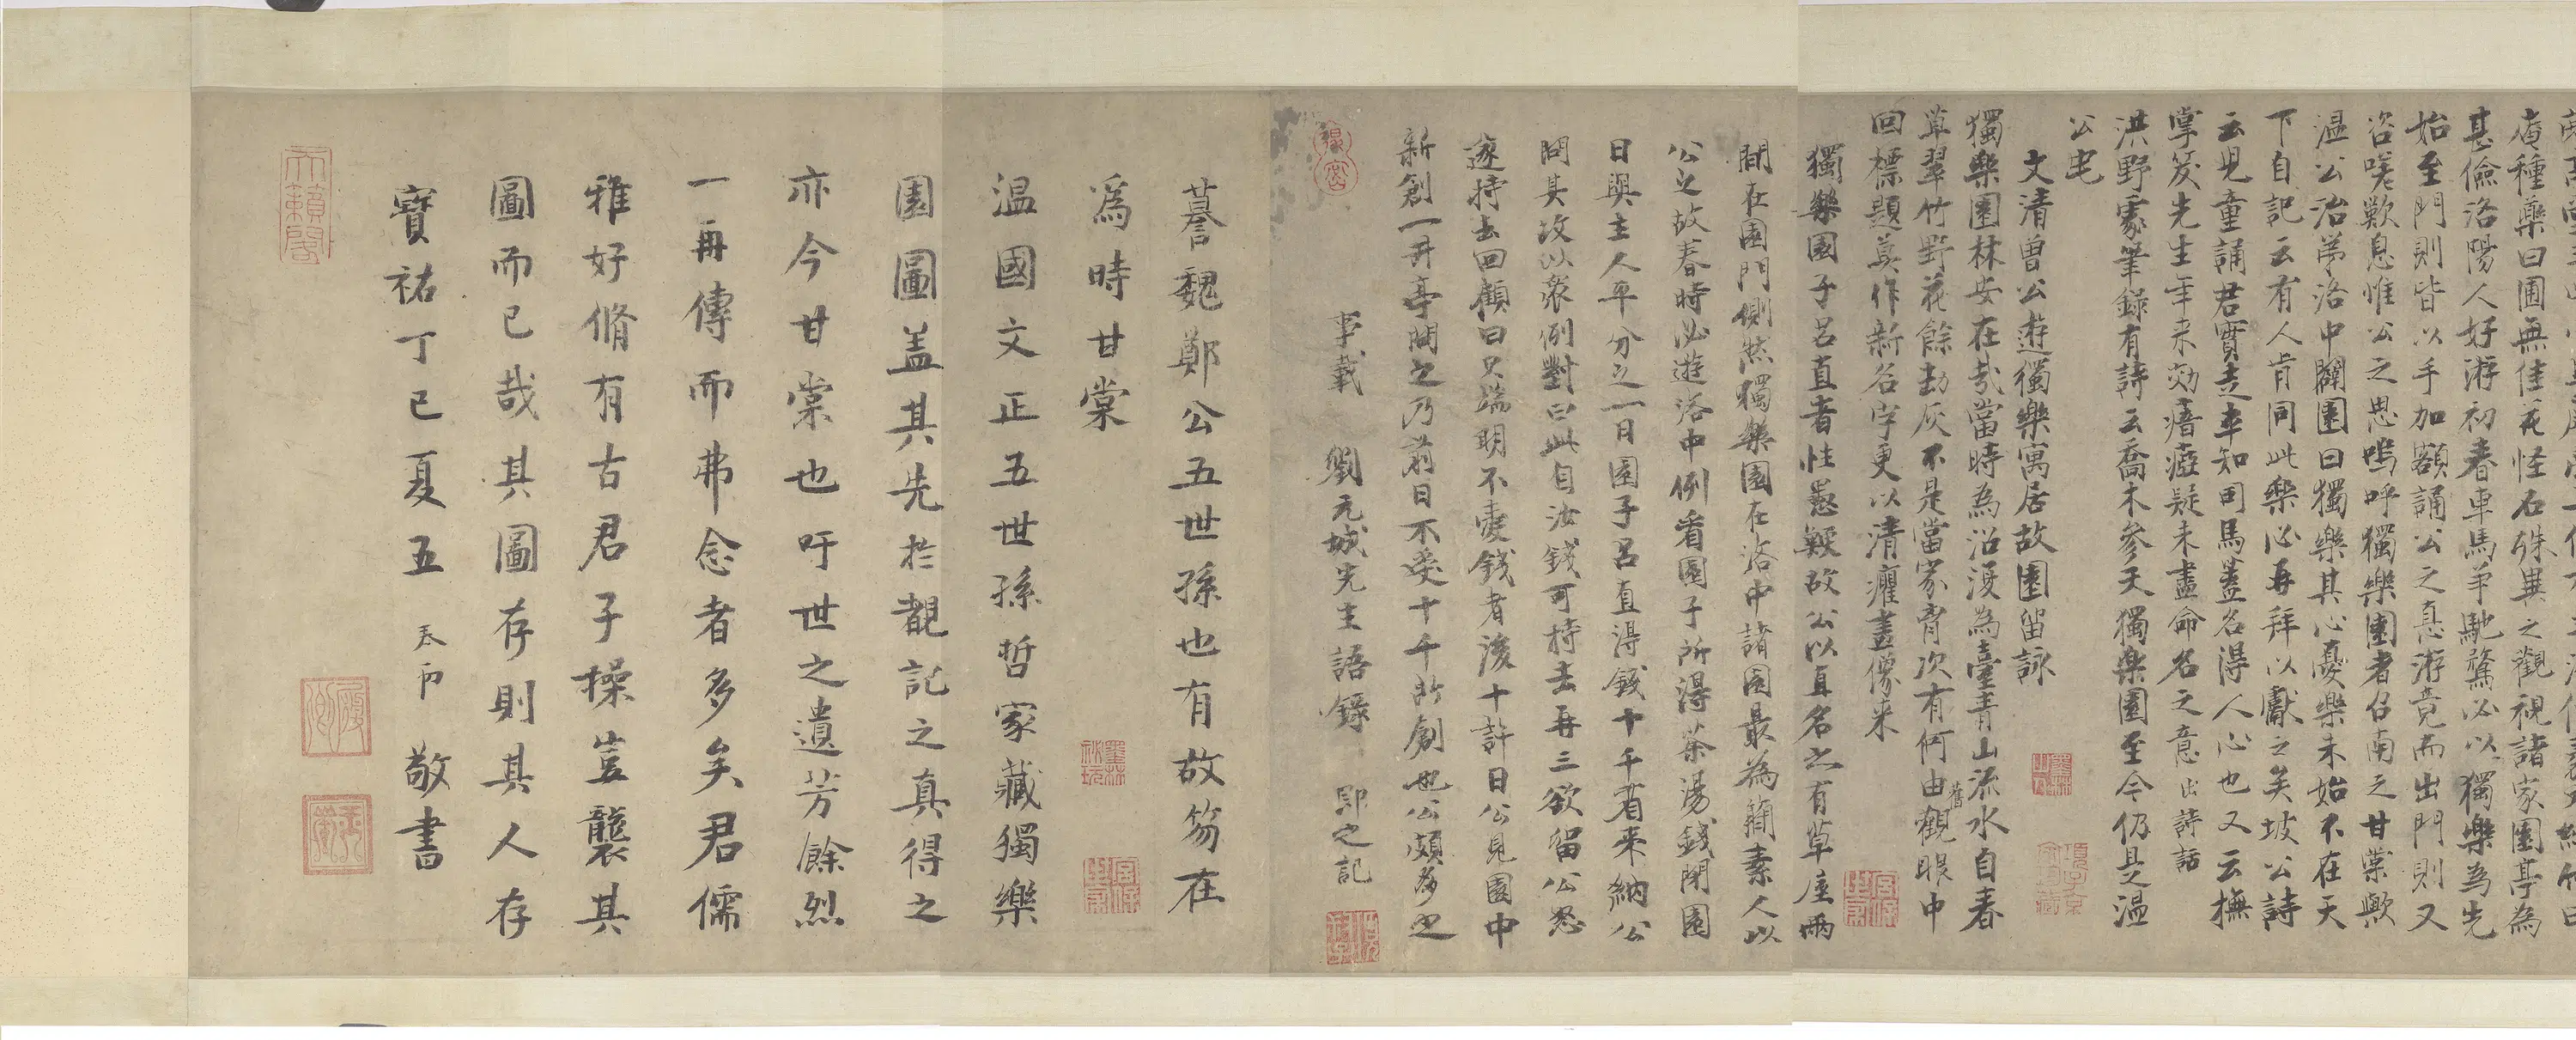 庵種藥曰圃無佳花怪石殊異之觀視諸家園亭為
甚儉洛陽人好游初春車馬爭馳騖必以獨樂為先
始至門則皆以手加額誦公之惪游竟而出門則又
咨嗟歎息惟公之思嗚呼獨樂園者召南之甘棠歟
温公治第洛中闢園曰獨樂其心憂樂未始不在天
下自記云有人肯同此樂必再拜以獻之矣坡公詩
云兒童誦君實走卒知司馬蓋名得人心也又云撫
掌笑先生年來効瘖瘂疑未盡命名之意出詩話
洪野處筆録有詩云喬木參天獨樂園至今仍是温
公宅
文清曾公遊獨樂寓居故園留詠
獨樂園林安在哉當時為沼漫為臺青山流水自春
草翠竹野花餘劫灰不是當家胷次有何由觀眼中
舊
回標題莫作新名字更以清癯畫像来
獨樂園子呂直者性愚鯁故公以直名之有草屋兩
間在園門側然獨樂園在洛中諸園最為簡素人以
公之故春時必遊洛中例看園子所得茶湯錢閉園
日與主人平分之一日園子呂直得錢十千省来納公
問其故以衆例對曰此自汝錢可持去再三欲留公怒
遂持去回顧曰只端明不愛錢者後十許日公見園中
新創一井亭問之乃前日不受十千所創也公頗多之
事載 劉元城先生語録 即之記
蓦魏鄭公五世孫也有故笏在
爲時甘棠
温國文正五世孫哲家藏獨樂
園圖盖其先於覩記之真得之
亦今甘棠也吁世之遺芳餘烈
一再傳而弗念者多矣君儒
雅好脩有古君子操豈襲其
圖而已哉其圖存則其人存
寶祐丁巳夏五 敬書